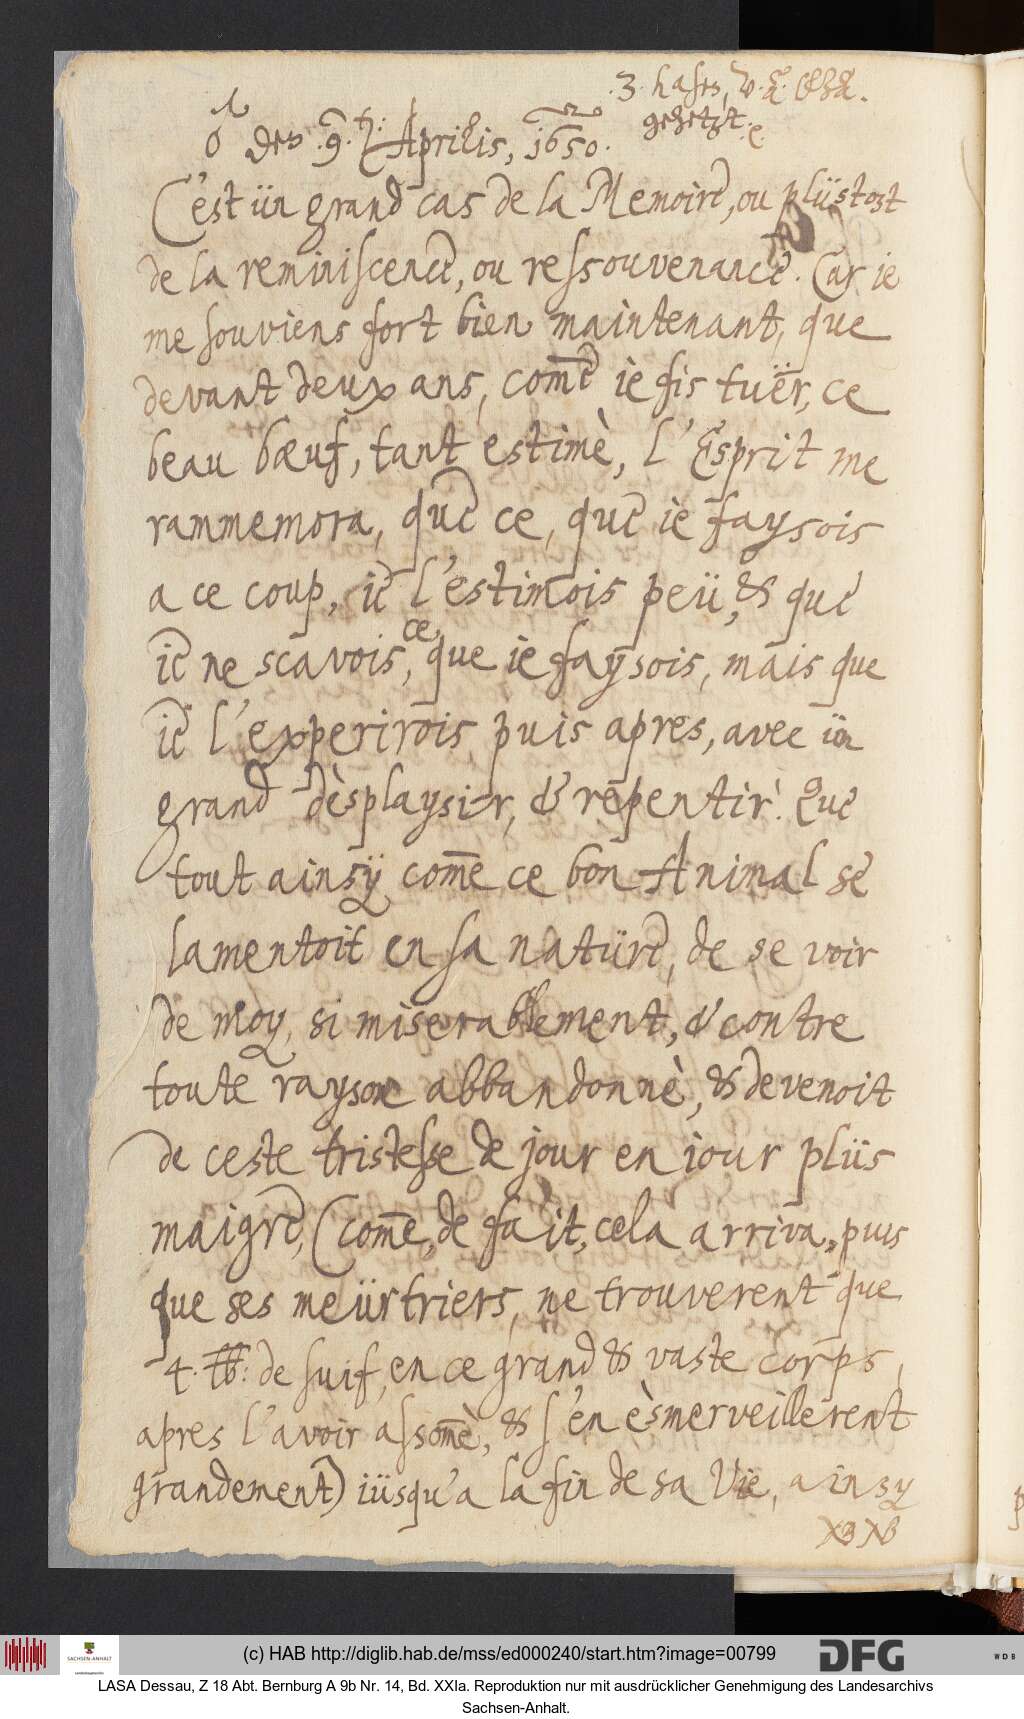 3. hasen,
gehetzt.
♂ den: 9. Aprilis, 1650.
C'est ün grand cas de la Memoire, ou plüstost
de la reminiscence, ou ressouvenance. Car ie
me souviens fort bien maintenant, que
devant deux ans, com̄e ie fis tuër, ce
beau bœuf, tant estimè, l'Esprit me
rammemora, que ce, que ie faysois
a ce coup, ie l'estimois peü, & que
ie ne scavois, ce, que ie faysois, mais que
ie l'experirois puis apres, avec ün
grand dèsplaysir, & repentir! Que
tout ainsÿ com̄e ce bon Animal se
lamentoit en sa natüre, de se voir
de moy, si miserablement, & contre
toute rayson abbandonnè, & devenoit
de ceste tristesse de jour en iour plüs
maigre, (com̄e, de fait, cela arriva, puis
que ses meürtriers, ne trouverent que
4. ℔: de suif, en ce grand & vaste corps,
apres l'avoir assom̄è, & s'en èsmerveillerent
grandement) iüsqu'a la fin de sa Vie, ainsy
(c) HAB http://diglib.hab.de/mss/ed000240/start.htm?image=00799
SACHSEN-ANHALT
DFG
WDB
LASA Dessau, Z 18 Abt. Bernburg A 9b Nr. 14, Bd. XXIa. Reproduktion nur mit ausdrücklicher Genehmigung des Landesarchivs
Sachsen-Anhalt.